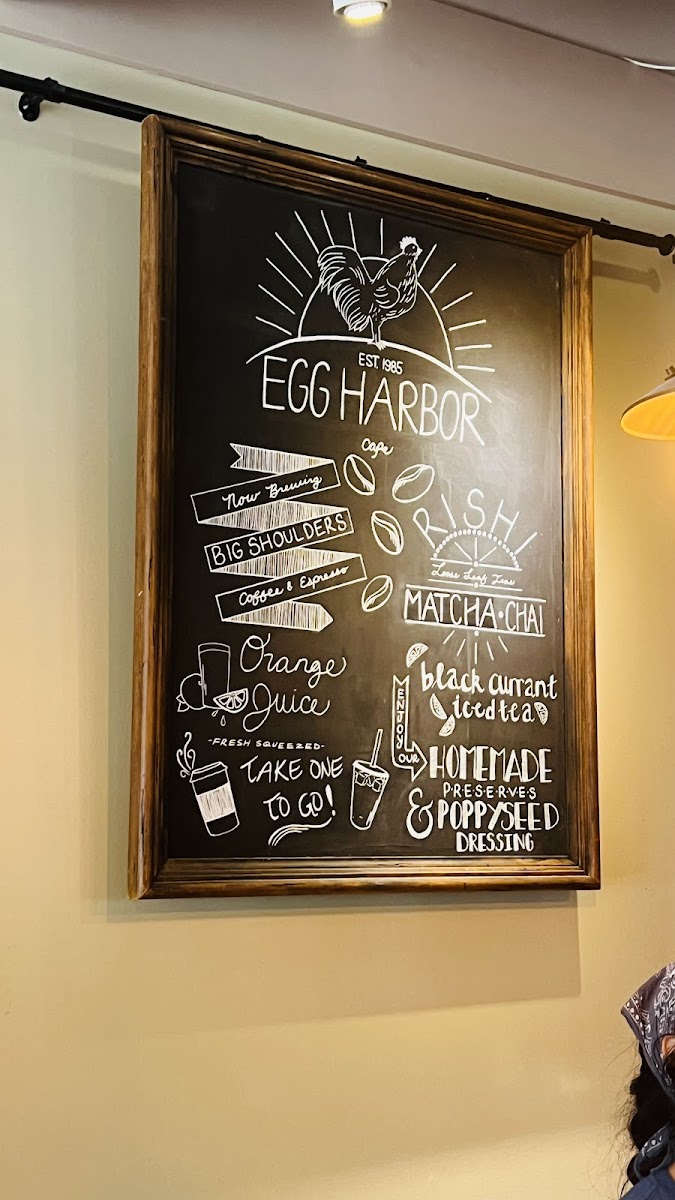 EST. 1985
EGG HARBOR
Cafe
Now Brewing
BIG SHOULDERS
Coffee & Espresso
RISHI
Loose Leaf Teas
MATCHA · CHAI
Orange
Juice
-FRESH SQUEEZED-
TAKE ONE
TO GO!
black currant
iced tea
ENJOY
OUR
HOMEMADE
PRESERVES
& POPPYSEED
DRESSING